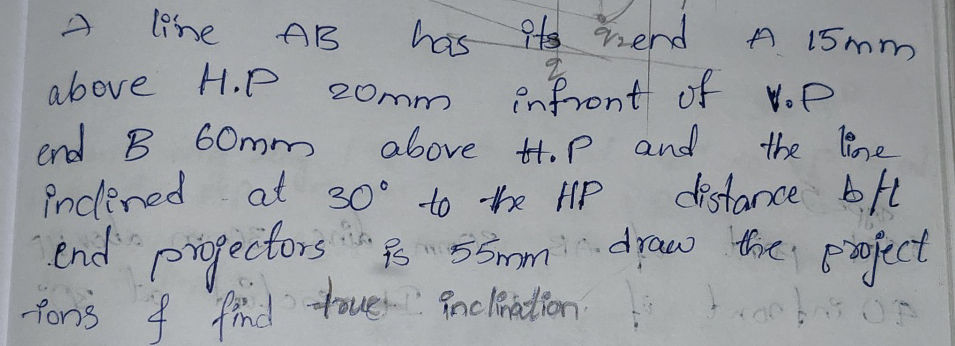 A line AB has its end A 15mm
above H.P 20mm infront of V.P
end B 60mm above H.P and the line
inclined at 30° to the HP distance b/t
end projectors is 55mm draw the project
ions & find true inclination